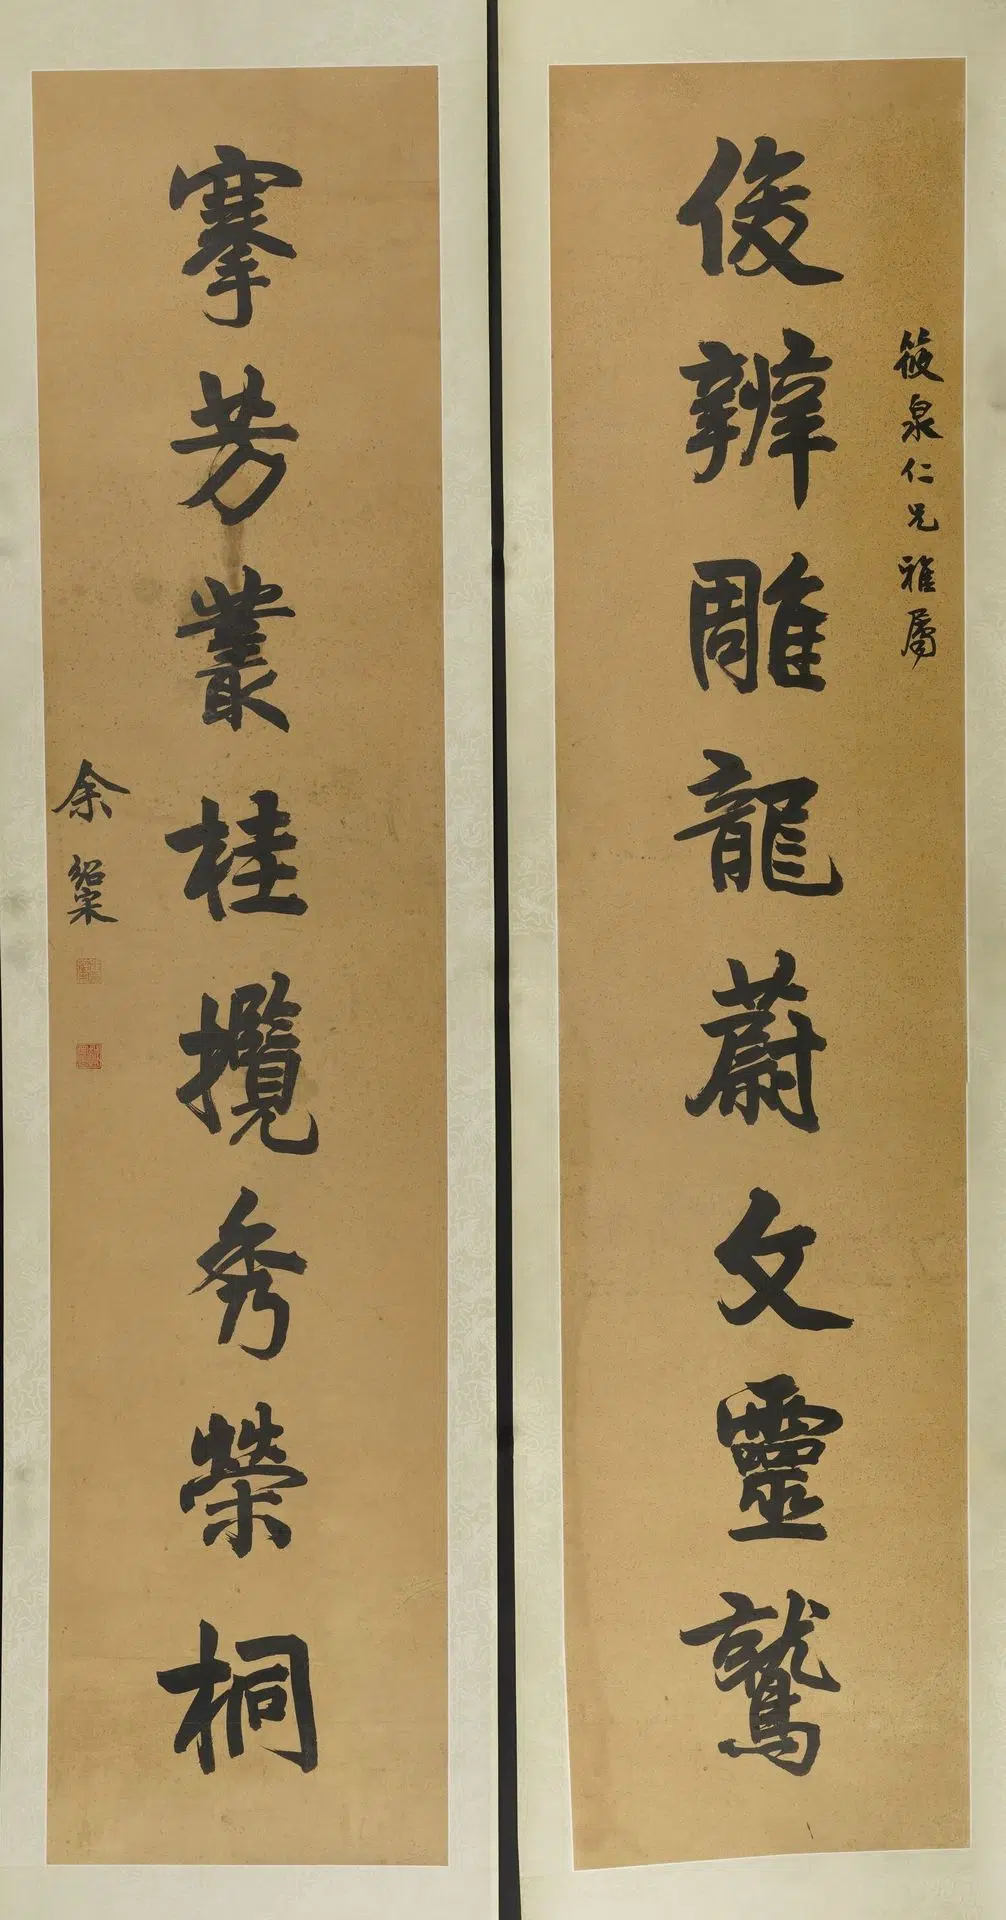 筱泉仁兄雅屬
俊辨雕龍蔚文靈鷲
搴芳叢桂攬秀榮桐
余紹宋